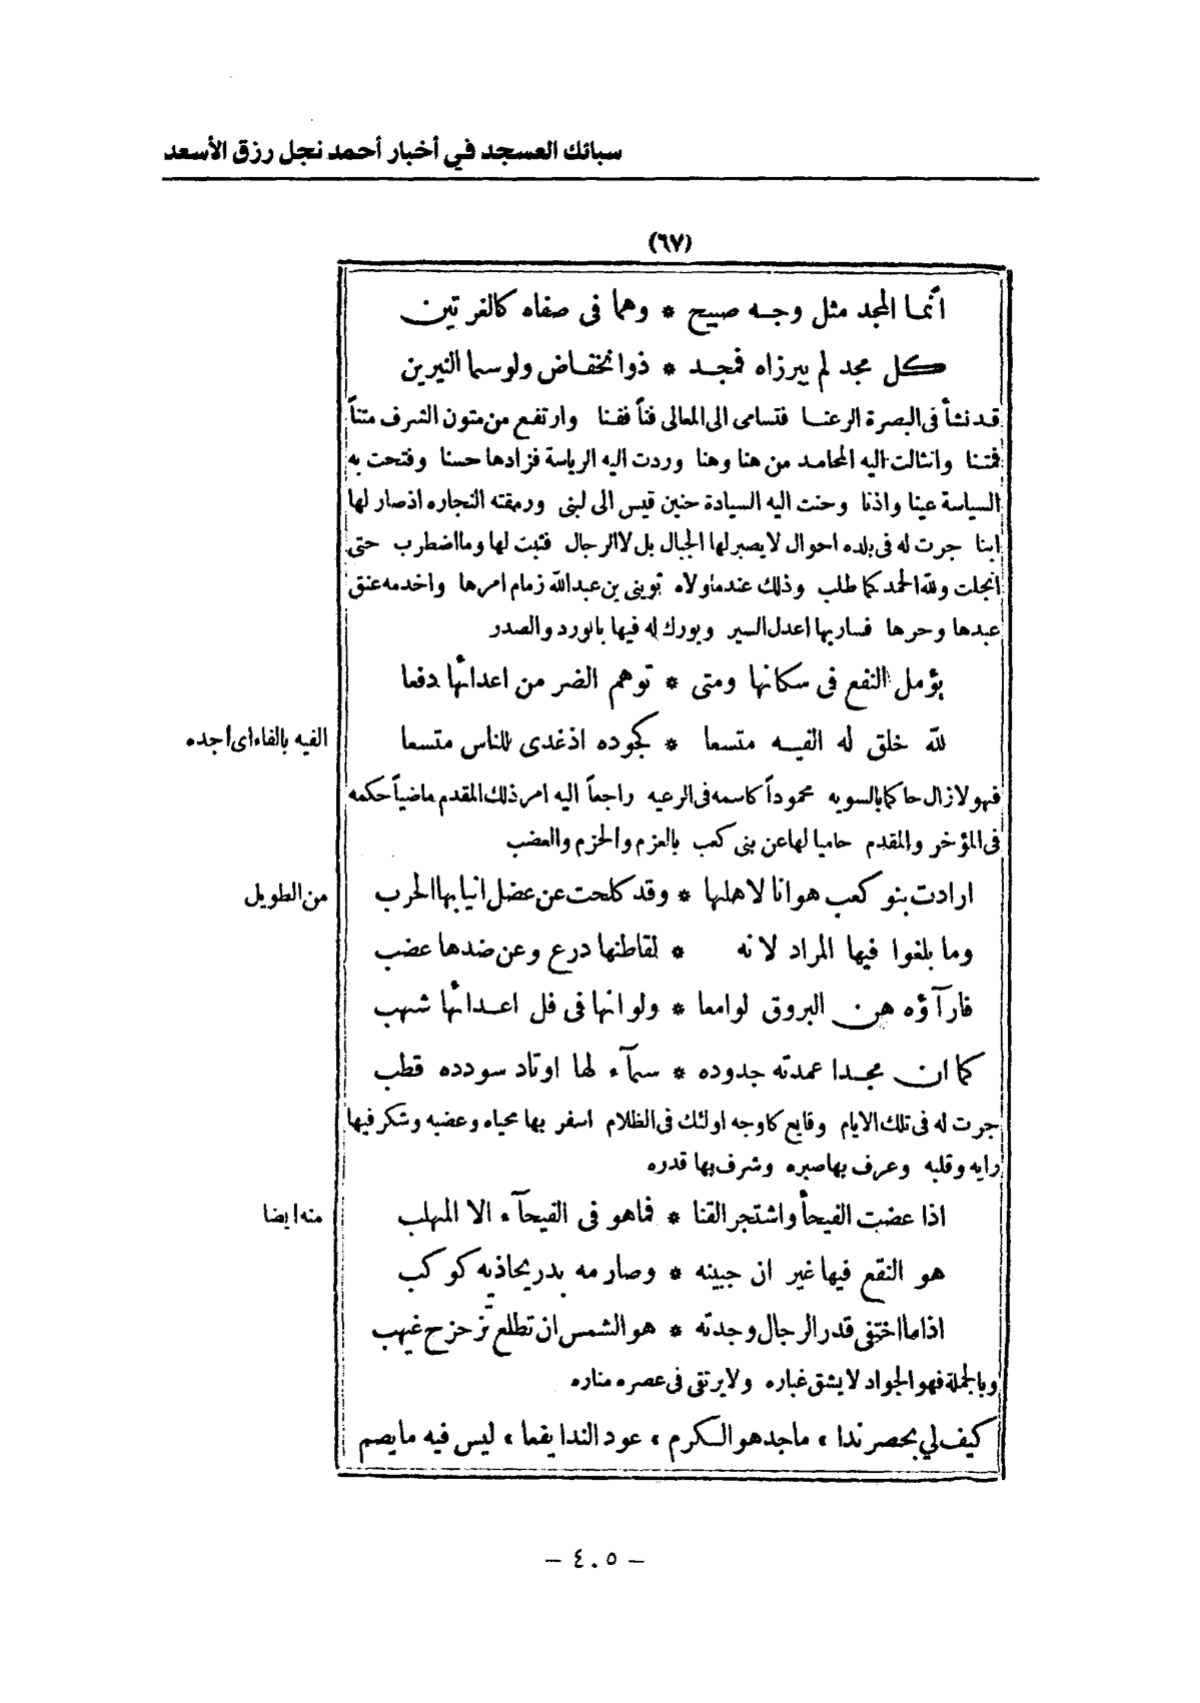 سبائك العسجد في أخبار أحمد نجل رزق الأسعد
(٦٧)
أنما المجد مثل وجه صبيح * وهما فى صفاه كالفرتين
كل مجد لم يبرزاه فمجد * ذو انخفاض ولو سما النيرين
قد نشأ فى البصرة الرعنا فتسامى الى المعالى فناً ففنا وارتفع من متون الشرف متناً
فمتنا وانثالت اليه المحامد من هنا وهنا وردت اليه الرياسة فزادها حسنا وفتحت به
السياسة عينا واذنا وحنت اليه السيادة حنين قيس الى لبنى ورمقته النجاره اذ صار لها
ابنا جرت له فى بلده احوال لا يصبر لها الجبال بل لا الرجال فثبت لها وما اضطرب حتى
انجلت ولله الحمد كما طلب وذلك عندما ولاه ثوينى بن عبد الله زمام امرها واخدمه عنق
عبدها وحرها فسار بها اعدل السير وبورك له فيها بالورد والصدر
يؤمل النفع فى سكانها ومتى * توهم الضر من اعدائها دفعا
لله خلق له الفيه متسعا * كجوده اذ غدى للناس متسعا
الفيه بالفاء اى اجده
فهو لا زال حاكما بالسويه محموداً كاسمه فى الرعيه راجعاً اليه امر ذلك المقدم ماضياً حكمه
فى المؤخر والمقدم حاميا لها عن بنى كعب بالعزم والحزم والعضب
ارادت بنو كعب هوانا لاهلها * وقد كلحت عن عضل انيابها الحرب
من الطويل
وما بلغوا فيها المراد لانه * لقاطنها درع وعن ضدها عضب
فارآؤه هن البروق لوامعا * ولو انها فى فل اعدائها شهب
كما ان مجدا عمدته جدوده * سمآء لها اوتاد سودده قطب
جرت له فى تلك الايام وقايع كاوجه اولئك فى الظلام اسفر بها محياه وعضبه وشكر فيها
رايه وقلبه وعرف بها صبره وشرف بها قدره
اذا عضت الفيحأ واشتجر القنا * فما هو فى الفيحآء الا المهلب
منه ايضا
هو النقع فيها غير ان جبينه * وصارمه بدر يحاذيه كوكب
اذا ما اختفى قدر الرجال وجدته * هو الشمس ان تطلع تزحزح غيهب
وبالجملة فهو الجواد لا يشق غباره ولا يرتقى فى عصره مناره
كيف لي بحصر ندا ، ماجد هو الكرم ، عود الندا يفعا ، ليس فيه ما يصم
– ٤٠٥ –